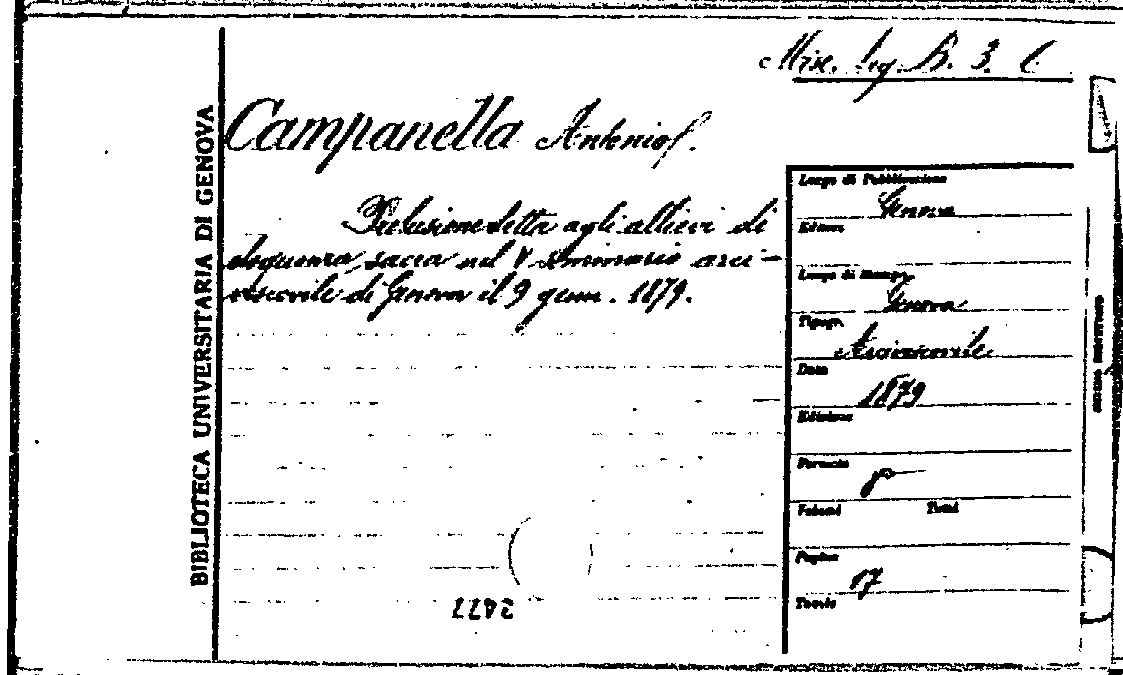 Misc. leg. B. 3. 6
BIBLIOTECA UNIVERSITARIA DI GENOVA
Campanella Antonio
Prelusione detta agli allievi di
eloquenza sacra nel V Seminario arci-
vescovile di Genova il 9 genn. 1879.
Luogo di Pubblicazione
Genova
Editore
Luogo di Stampa
Genova
Tipogr.
Arcivescovile
Data
1879
Edizione
Formato
8°
Volumi Tomi
Pagine
17
Tavole